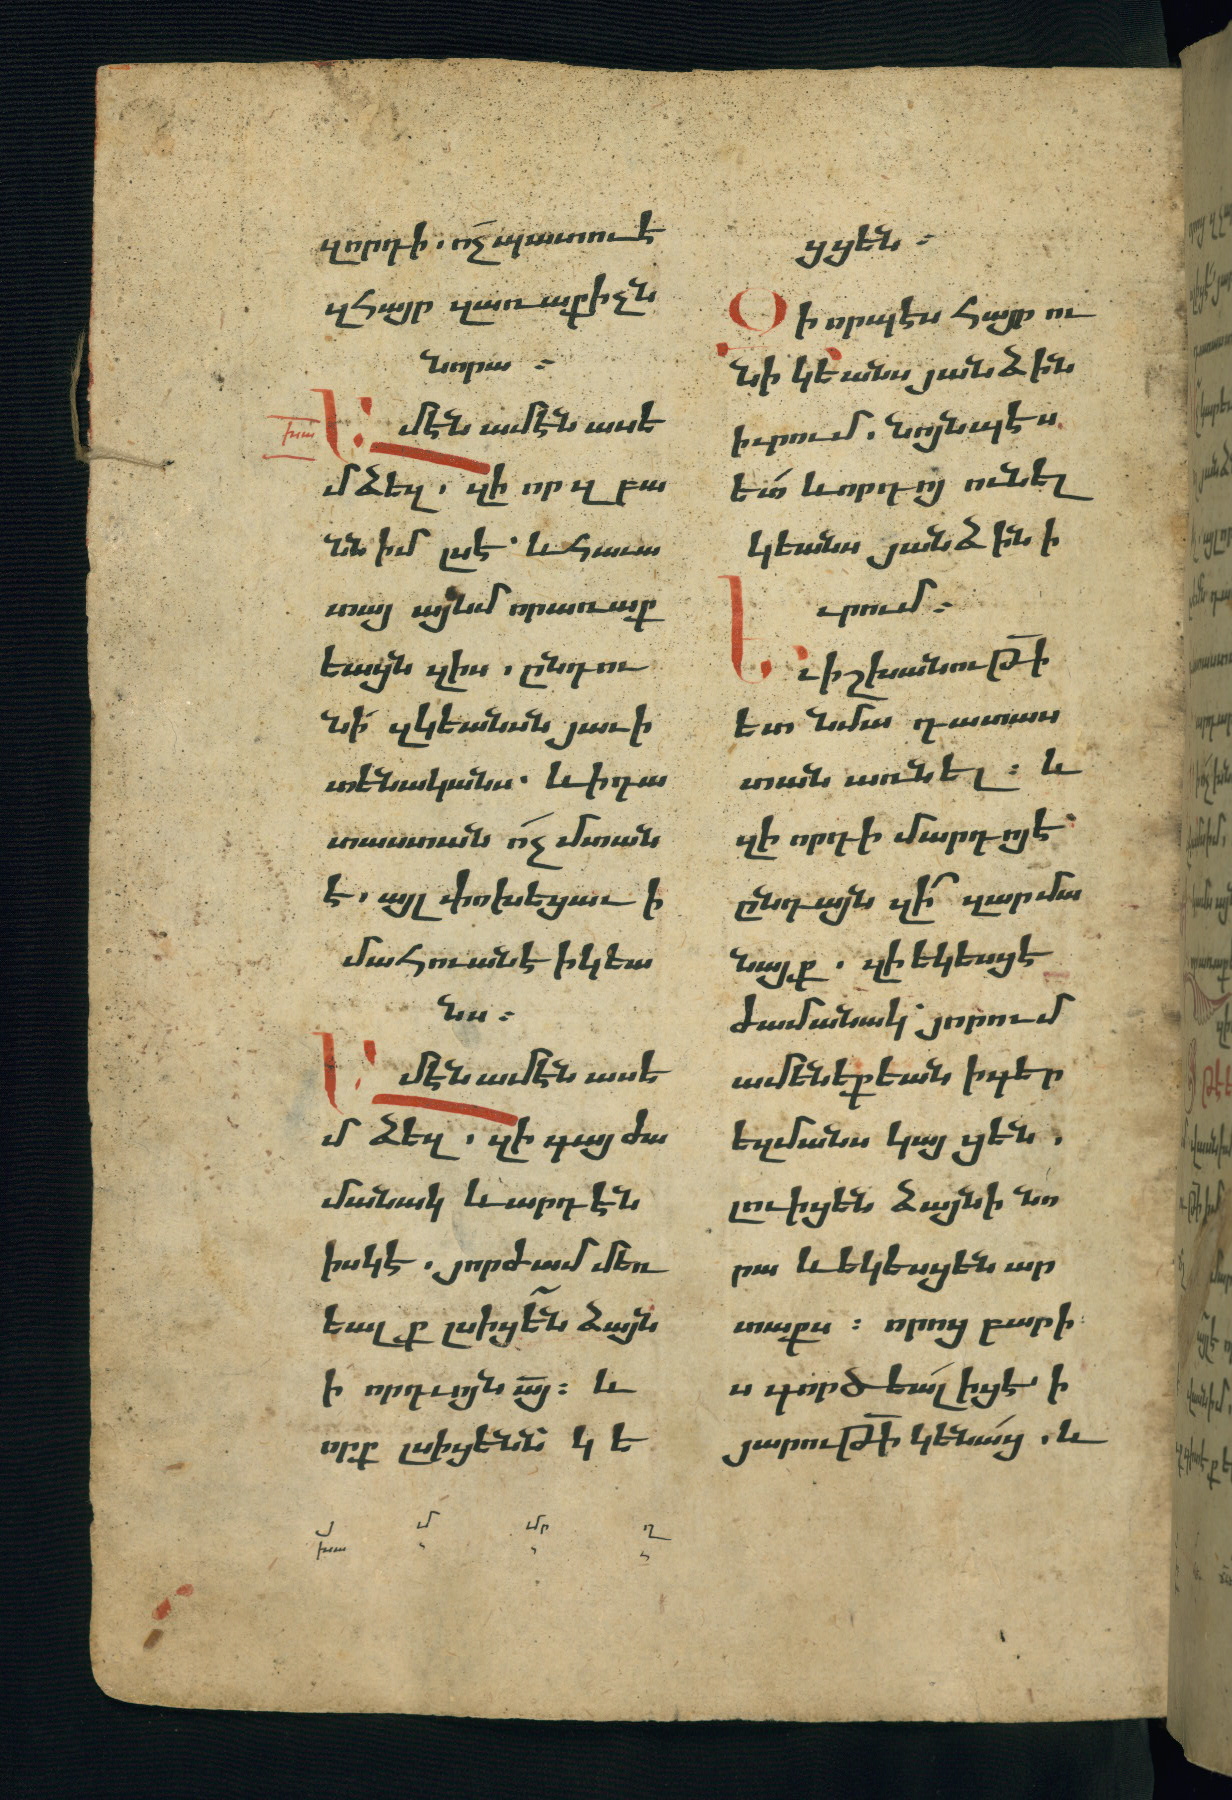 զորդի. ոչ պատուէ
զհայր զառաքիչն
նորա :
Ամէն ամէն ասե
խա
մ ձեզ. զի որ զբա
նն իմ լսէ՝ և հաւա
տայ այնմ որառաք
եացն զիս. ընդու
նի զկեանսն յաւի
տենականս. և ի դա
տաստան ոչ մտան
է. այլ փոխեցաւ ի
մահուանէ ի կեա
նս :
Ամէն ամէն ասե
մ ձեզ. զի գայ ժա
մանակ և արդ էն
իսկէ. յորժամ մեռ
եալք լսիցեն ձայն
ի որդւոյն ա՟յ : և
որք լսիցենն կ ե
ցցեն :
Զի որպէս հայր ու
նի կեանս յանձին
իւրում. նոյնպէս
ետ և որդոյ ունել
կեանս յանձին ի
ւրում :
Եւ իշխանութ՟ի
ետ նմա դատաս
տան առնել : և
զի որդի մարդոյ է՝
ընդայն զի՞ զարմա
նայք. զի եկեսցէ
ժամանակ՝ յորում
ամենեքեան ի գեր
եզմանս կայցեն.
լուիցեն ձայնի նո
րա և եկեսցեն ար
տաքս : որոց բարի
ս գործեալ իցէ՝ ի
յարութ՟ի կենաց. և
յ մ մր ղ
խա